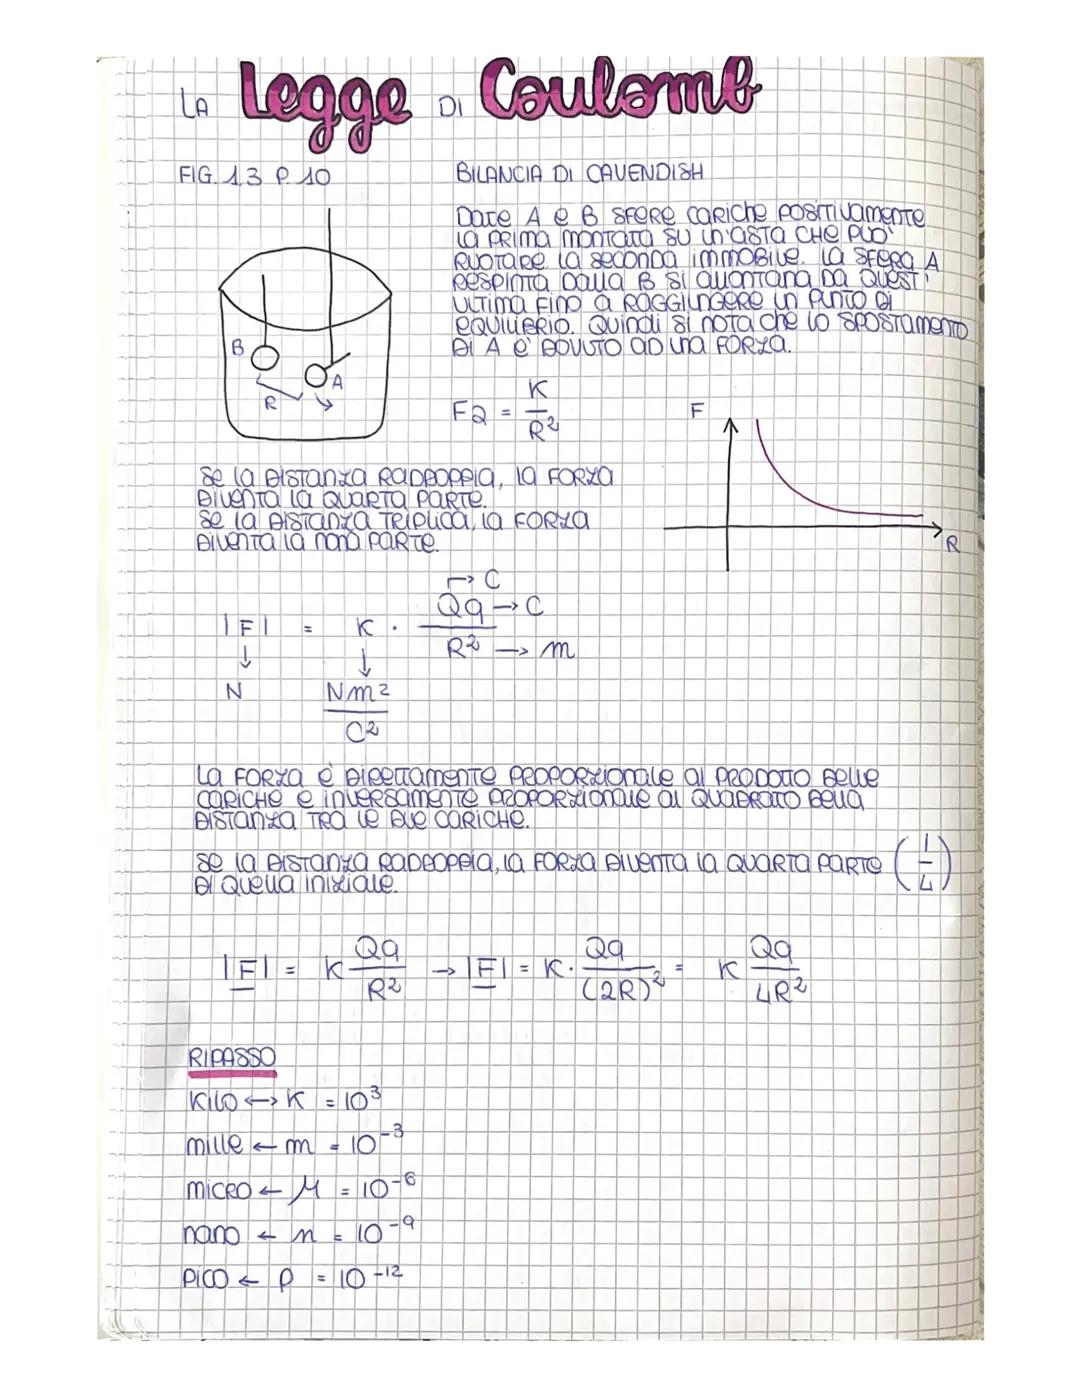 LA Legge DI Coulomb
FIG. 1.3 P. 10
BILANCIA DI CAVENDISH
DATE A E B SFERE CARICHE POSITIVAMENTE
LA PRIMA MONTATA SU UN'ASTA CHE PUO'
RUOTARE LA SECONDA IMMOBILE. LA SFERA A
RESPINTA DALLA B SI ALLONTANA DA QUEST'
ULTIMA FINO A RAGGIUNGERE UN PUNTO DI
EQUILIBRIO. QUINDI SI NOTA CHE LO SPOSTAMENTO
DI A E' DOVUTO AD UNA FORZA.
B
A
R
F2 = K / R²
F
R
SE LA DISTANZA RADDOPPIA, LA FORZA
DIVENTA LA QUARTA PARTE.
SE LA DISTANZA TRIPLICA, LA FORZA
DIVENTA LA NONA PARTE.
→ C
|F| = K · Qq / R² → C
→ m
↓ ↓
N Nm² / C²
LA FORZA È DIRETTAMENTE PROPORZIONALE AL PRODOTTO DELLE
CARICHE E INVERSAMENTE PROPORZIONALE AL QUADRATO DELLA
DISTANZA TRA LE DUE CARICHE.
SE LA DISTANZA RADDOPPIA, LA FORZA DIVENTA LA QUARTA PARTE (1/4)
DI QUELLA INIZIALE.
|F| = K Qq / R² → |F| = K · Qq / (2R)² = K Qq / 4R²
RIPASSO
KILO ↔ K = 10³
mille ← m = 10⁻³
micro ← μ = 10⁻⁶
nano ← n = 10⁻⁹
PICO ← P = 10⁻¹²